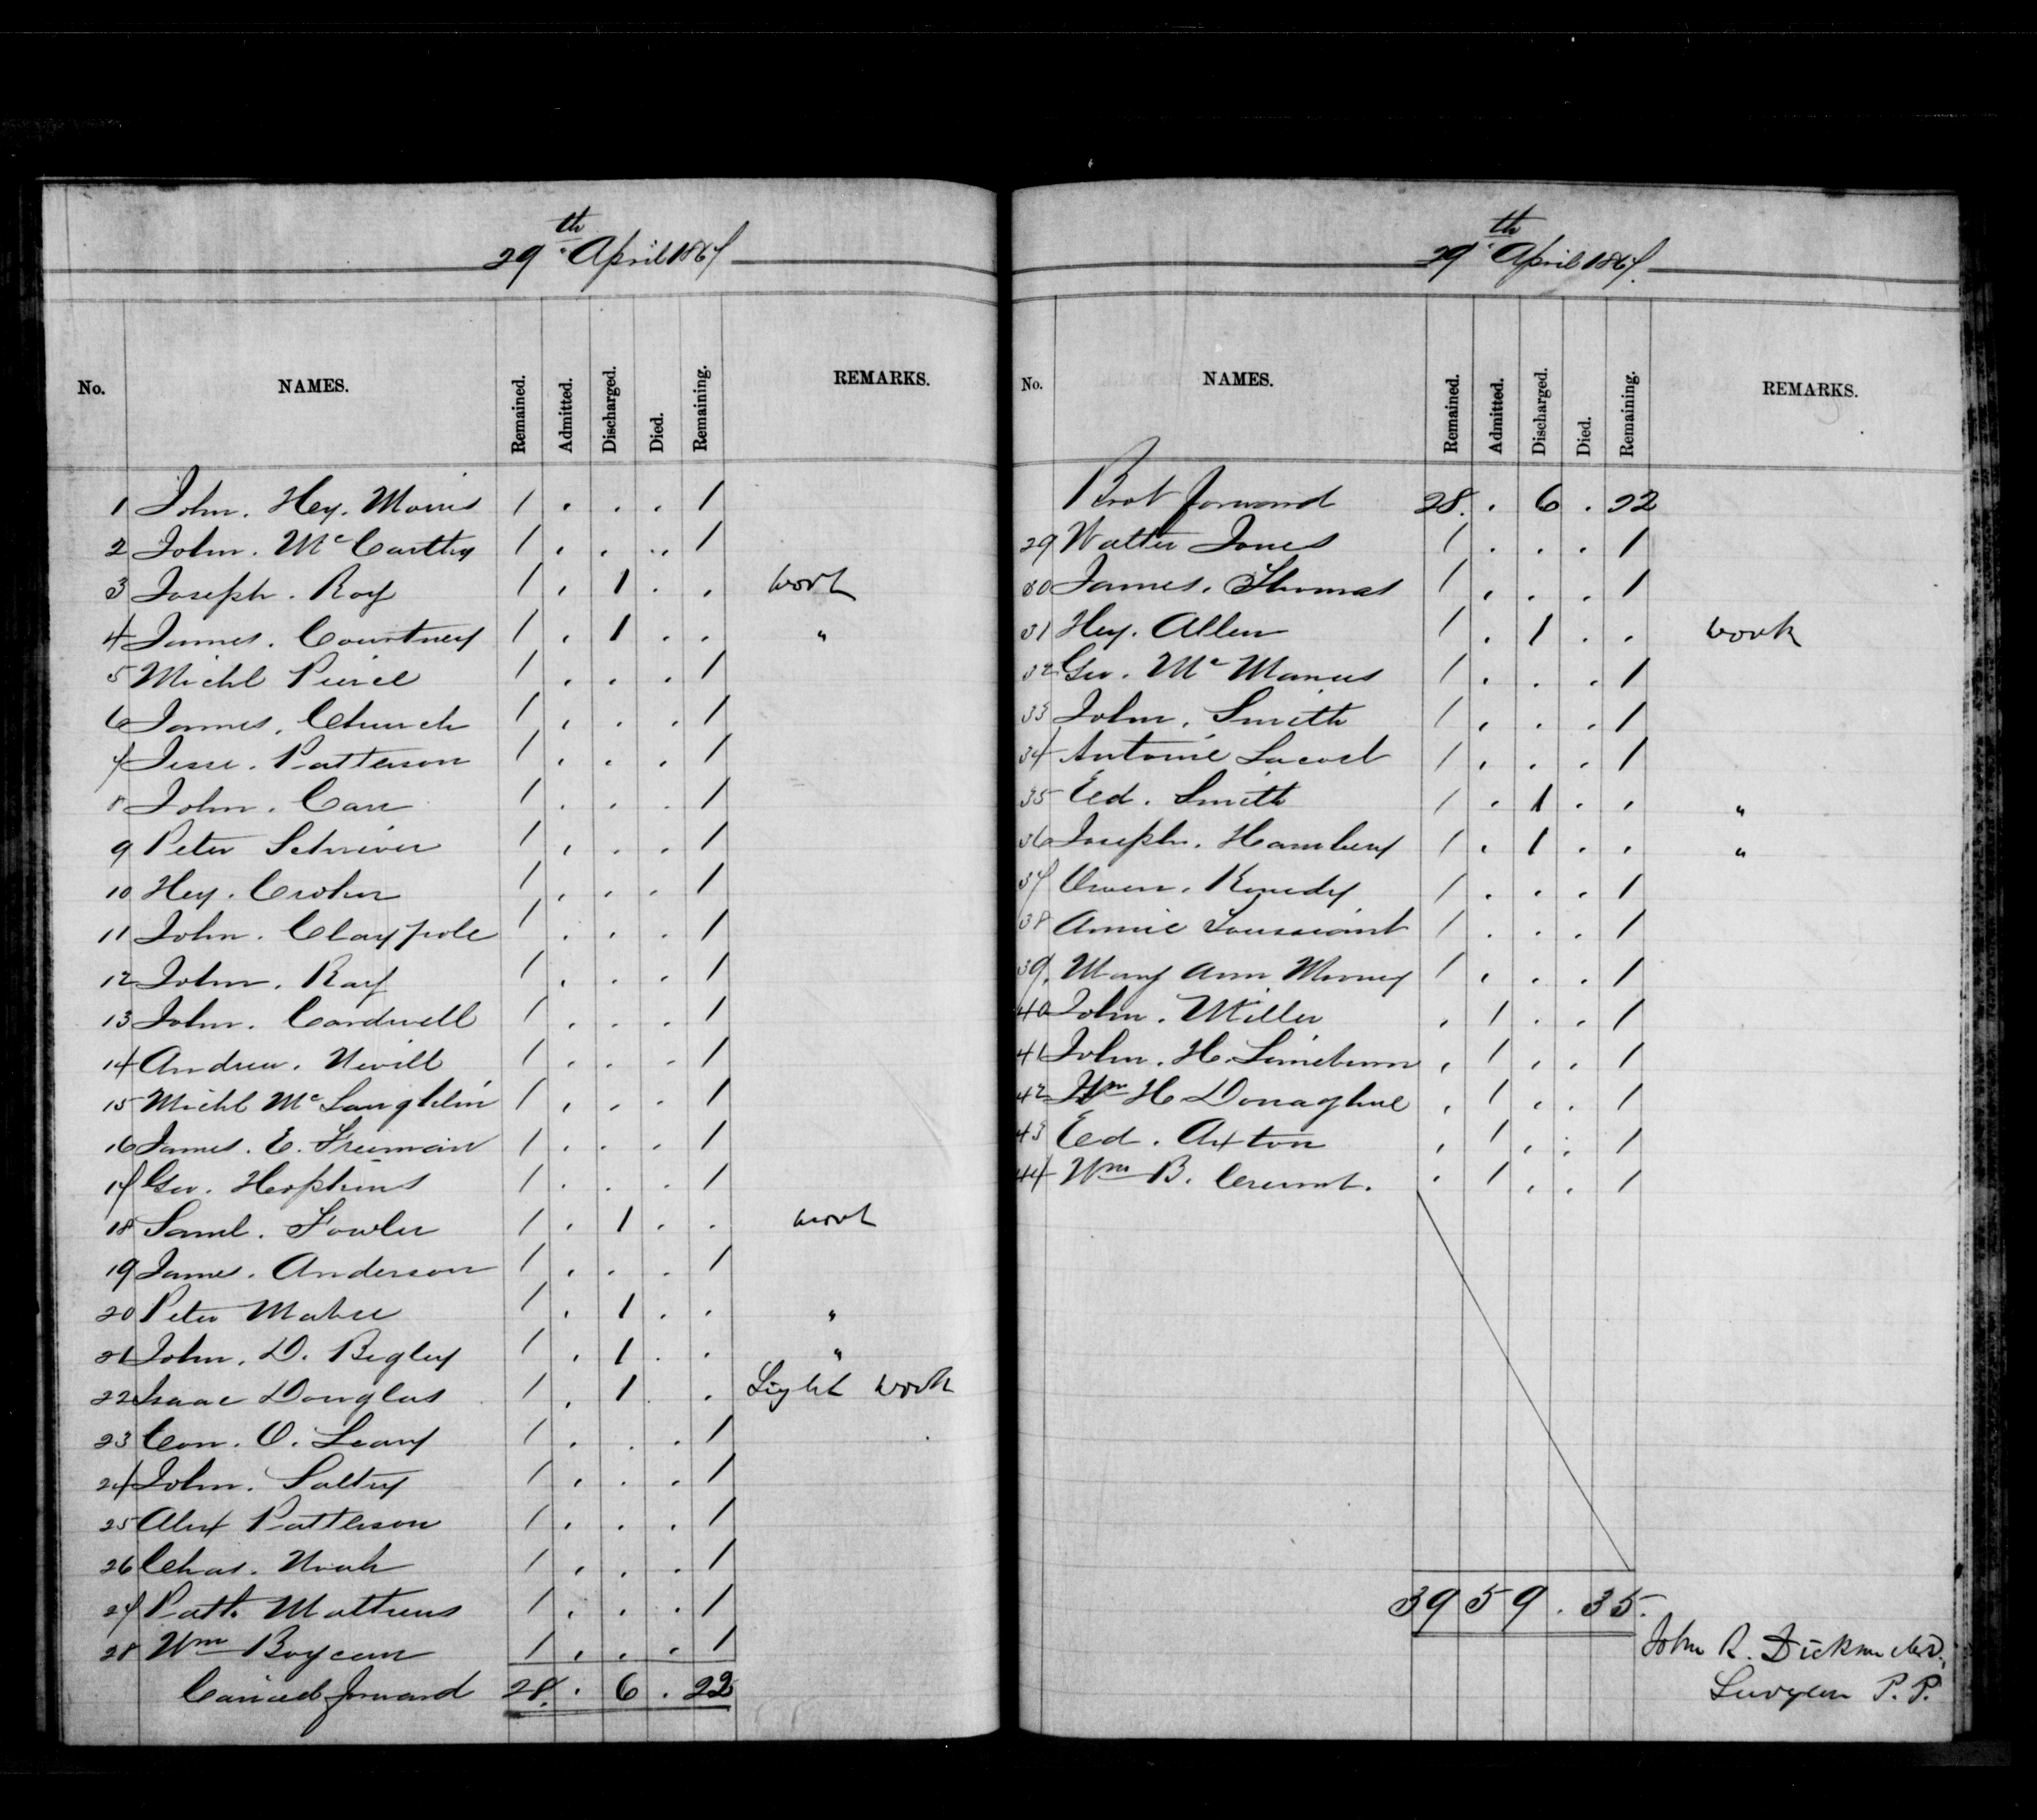 29th April 1867
No. NAMES. Remained. Admitted. Discharged. Died. Remaining. REMARKS.
1 John. Hey. Morris 1 . . . 1
2 John. Mc Carthy 1 . . . 1
3 Joseph. Roy 1 . 1 . . work
4 James. Courtney 1 . 1 . . "
5 Michl Peirce 1 . . . 1
6 James. Church 1 . . . 1
7 Jesse. Patterson 1 . . . 1
8 John. Carr 1 . . . 1
9 Peter Schriver 1 . . . 1
10 Hey. Croker 1 . . . 1
11 John. Claypole 1 . . . 1
12 John. Ray 1 . . . 1
13 John. Cardwell 1 . . . 1
14 Andrew. Nevill 1 . . . 1
15 Michl Mc Laughlin 1 . . . 1
16 James. E. Freeman 1 . . . 1
17 Geo. Hopkins 1 . . . 1
18 Saml. Fowler 1 . 1 . . work
19 James. Anderson 1 . . . 1
20 Peter Mabee 1 . 1 . . "
21 John. D. Begley 1 . 1 . . "
22 Isaac Douglas 1 . 1 . Light work
23 Con. O. Leary 1 . . . 1
24 John. Saltry 1 . . . 1
25 Alex Patterson 1 . . . 1
26 Chas. Noah 1 . . . 1
27 Patk. Mathews 1 . . . 1
28 Wm Boycan 1 . . . 1
Carried forward 28. . 6 . 22
29th April 1867.
No. NAMES. Remained. Admitted. Discharged. Died. Remaining. REMARKS.
Brot forward 28. . 6 . 22
29 Walter Jones 1 . . . 1
30 James. Thomas 1 . . . 1
31 Hey. Allen 1 . 1 . . work
32 Geo. Mc Manus 1 . . . 1
33 John. Smith 1 . . . 1
34 Antoine Lacost 1 . . . 1
35 Ed. Smith 1 . 1 . . "
36 Joseph. Hambery 1 . 1 . . "
37 Owen. Kenedy 1 . . . 1
38 Annie Toussaint 1 . . . 1
39. Mary Ann Mooney 1 . . . 1
40 John. Miller . 1 . . 1
41 John. H. Limeburn . 1 . . 1
42 Wm H. Donaghue . 1 . . 1
43 Ed. Axton . 1 . . 1
44 Wm B. . 1 . . 1
39 5 9 . 35.
John R. Dickson M.D.,
Surgeon P. P.